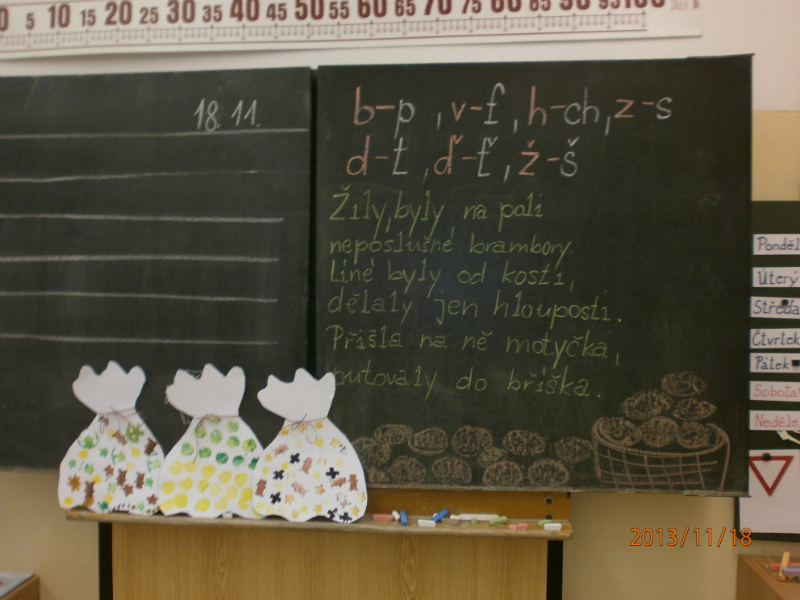 0 5 10 15 20 25 30 35 40 45 50 55 60 65 70 75 80 85 90 95 100
18. 11.
b-p, v-f, h-ch, z-s
d-t, ď-ť, ž-š
Žily, byly na poli
neposlušné brambory.
Líné byly od kosti,
dělaly jen hlouposti.
Přišla na ně motyčka,
putovaly do bříška.
Ponděl
Úterý
Středa
Čtvrtek
Pátek
Sobota
Neděle
2013/11/18